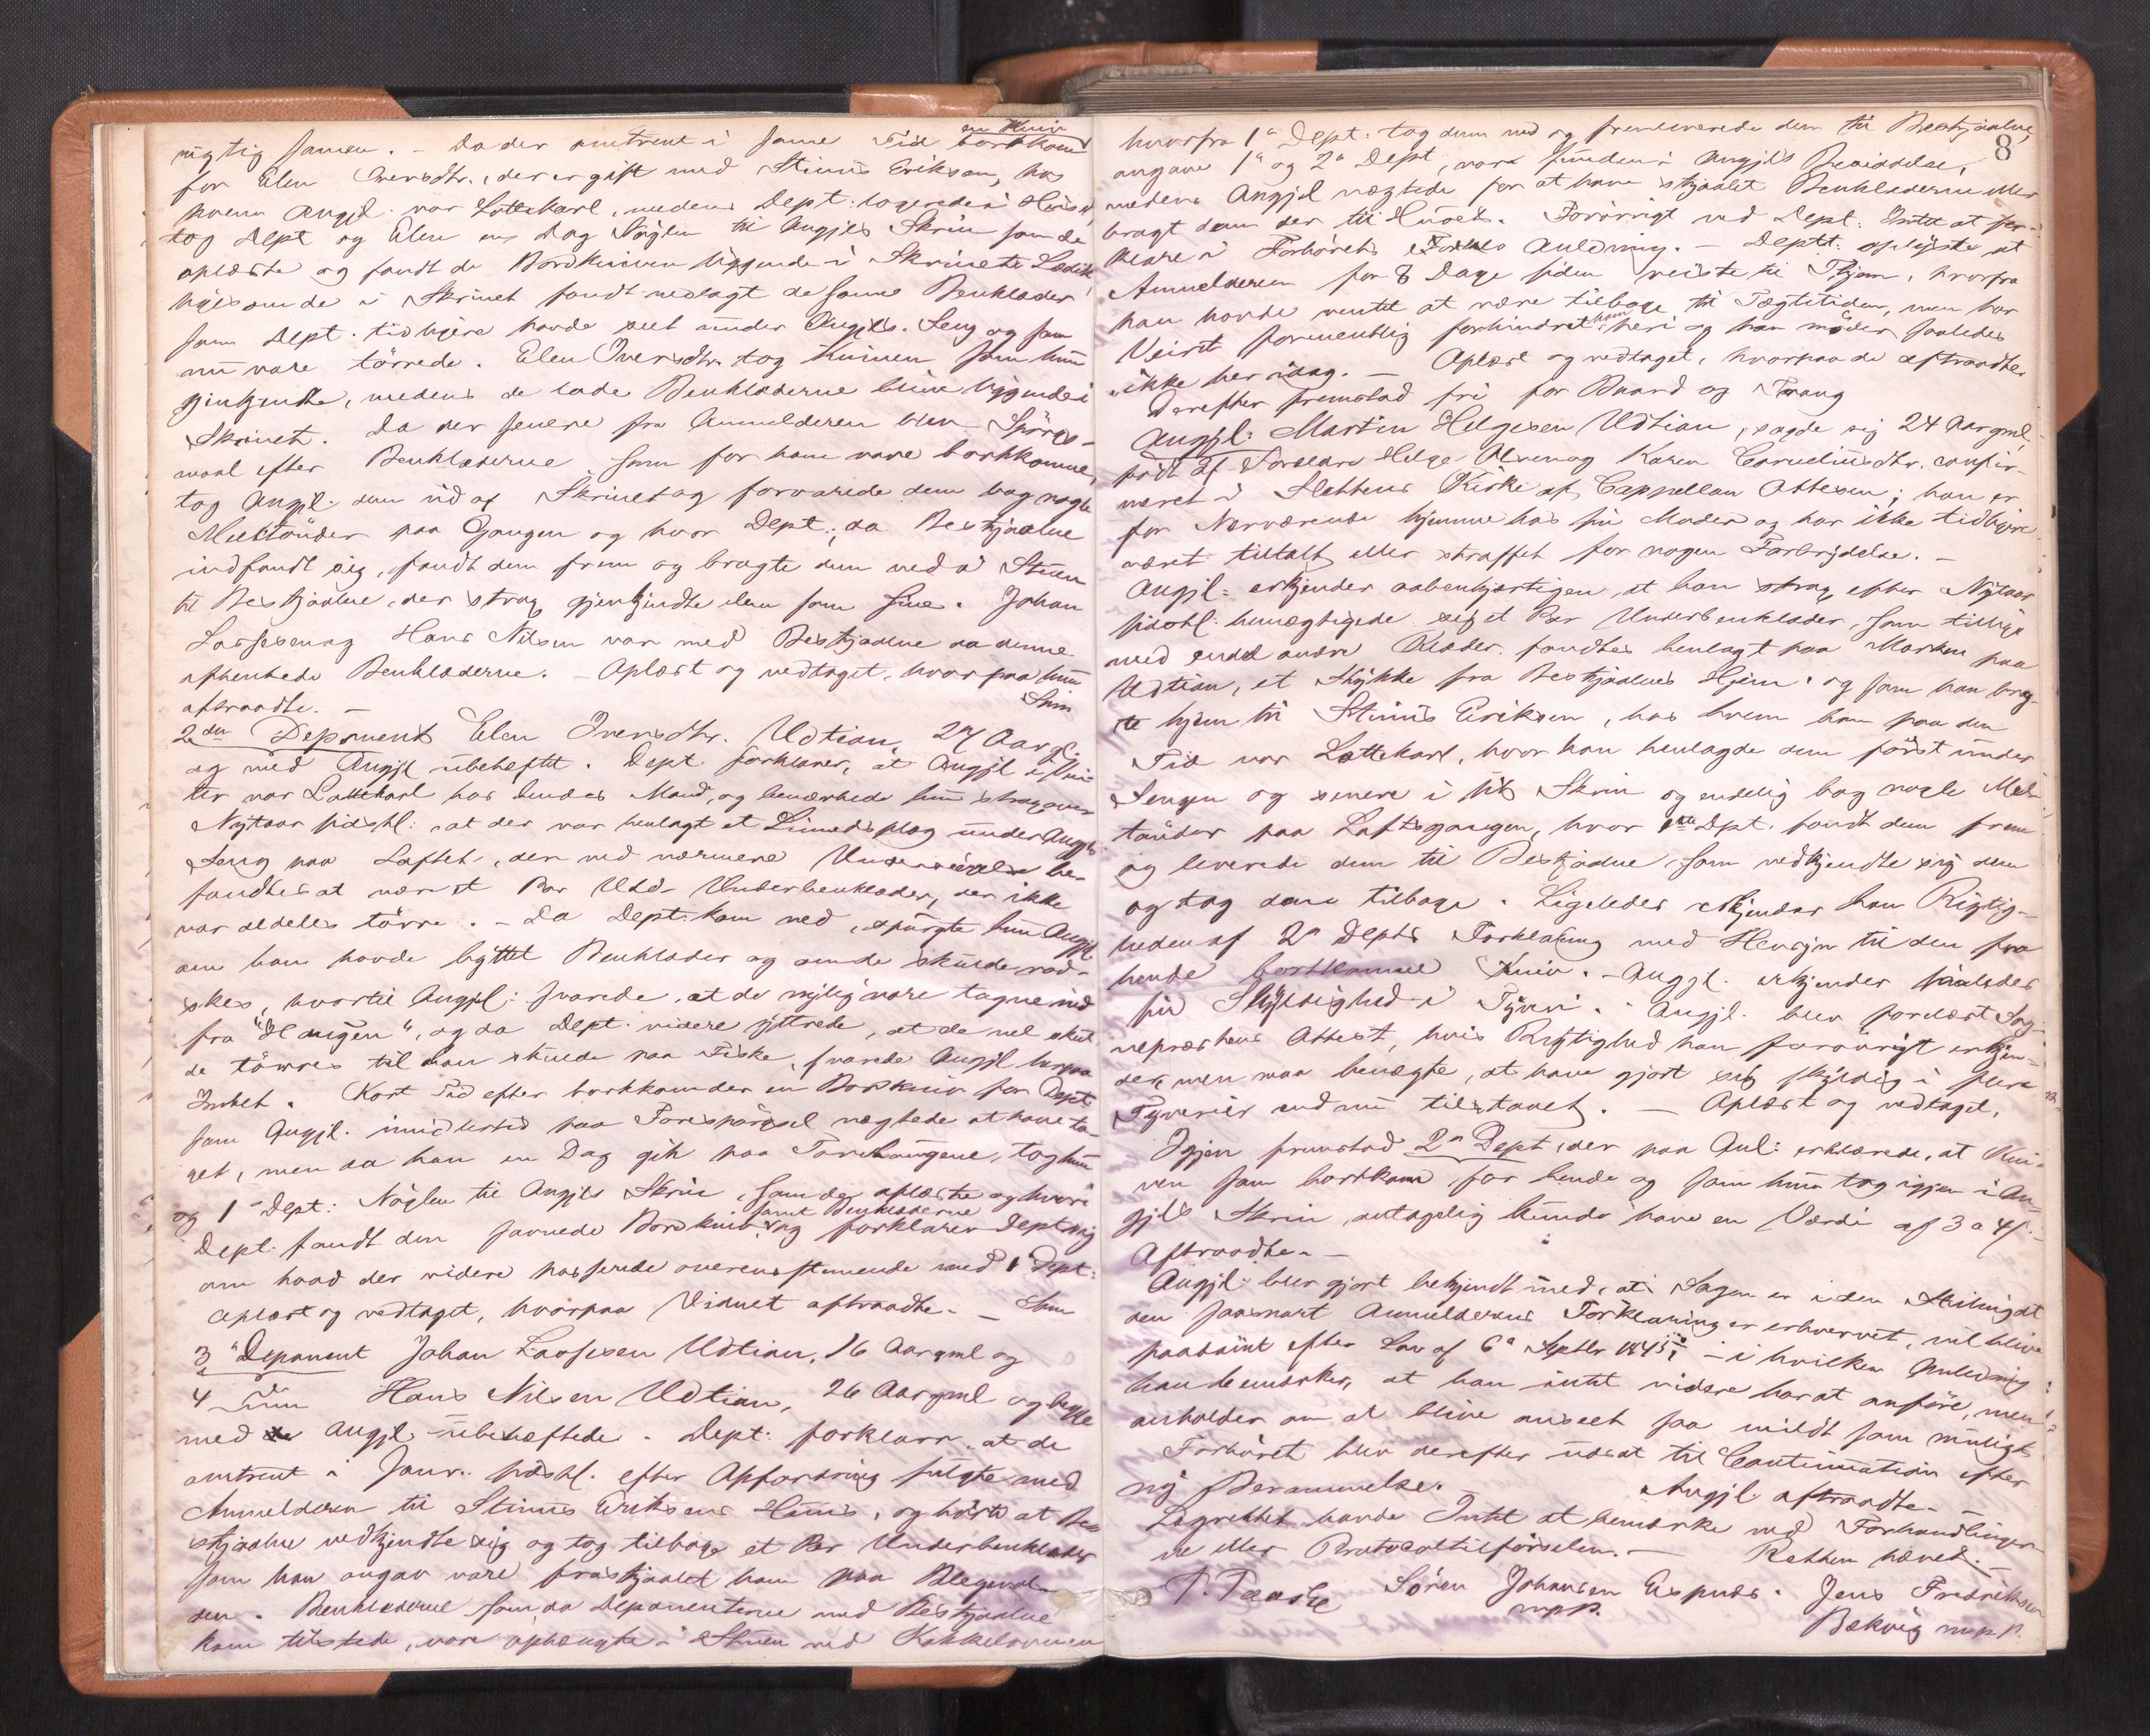 rigtig samen. – Da der omtrent i samme Tid en Kniv bortkom
for Elen Iversdtr., der er gift med Stinus Eriksen, hos
hvem Angjl. var Lottekarl, medens Dept. logerede i Huset,
tog Dept og Elen en Dag Nøglen til Angjls Skrin som de
oplaaste og fandt da Bordkniven liggende i Skrinets Leddik
ligesom de i Skrinet fandt nedlagt de samme Benklæder
som Dept. tidligere havde seet under Angjls. Seng og som
nu vare tørrede. Elen Iversdtr. tog Kniven som hun
gjenkjendte, medens de lode Benklæderne blive liggende i
Skrinet. Da der senere fra Anmelderen blev Spørgs-
maal efter Benklæderne som for ham vare bortkomne,
tog Angjl. dem ud af Skrinet og forvarede dem bag nogle
Meeltønder paa Gangen og hvor Dept., da Bestjaalne
indfandt sig, fandt dem frem og bragte dem ned i Stuen
til Bestjaalne, der strax gjenkjendte dem som sine. Johan
Lassesen og Hans Nilsen var med Bestjaalne da denne
afhentede Benklæderne. – Oplæst og vedtaget, hvorpaa hun
aftraadte. –
2den Deponent Elen Iversdtr. Udtian, 27 Aar gl.
og med Angjl ubeheftet. Dept. forklarer, at Angjl i Vin-
ter var Lottekarl hos hendes Mand, og bemærkede hun strax over
Nytaar sidstl: at der var henlagt et Linnedsplag under Angjls
Seng paa Loftet, der ved nærmere Undersøgelse be-
fandtes at være et Par Uld- Underbenklæder, der ikke
var aldeles tørre. – Da Dept. kom ned, spurgte hun Angjl
om han havde byttet Benklæder og om de skulde vad-
skes, hvortil Angjl: svarede, at de nylig vare tagne ind
fra "Haugen", og da Dept. videre yttrede, at de vel skul-
de tørres til han skulde paa Fiske, svarede Angjl herpaa
Intet. Kort Tid efter bortkom der en Bordkniv for Dept.
som Angjl. imidlertid paa Forespørgsel nægtede at have ta-
get, men da han en Dag gik paa Torvhaugene, tog hun
og 1ste Dept: Nøglen til Angjls Skrin, som de oplaaste og hvori
Dept. fandt den savnede Bordkniv samt Benklæderne og forklarer Dept sig
om hvad der videre passerede overensstemmende med 1 Dept:
Oplæst og vedtaget, hvorpaa Vidnet aftraadte. –
3die Deponent Johan Lassesen Udtian, 16 Aar gml og
4de Hans Nilsen Udtian, 26 Aar gml og begge
med Angjl. ubeheftede. Dept: forklarer, at de
omtrent i Janr. sidstl. efter Opfordring fulgte med
Anmelderen til Stinus Eriksens Huus, og hørte at Be-
stjaalne vedkjendte sig og tog tilbage et Par Underbenklæder
som han angav vare frastjaalet ham paa Blegevol-
den. Benklæderne som, da Deponenterne med Bestjaalne
kom tilstede, vare ophængte i Stuen ved Kakkelovnen
8
hvorfra 1ste Dept. tog dem ned og fremleverede dem til Bestjaalne,
angave 1ste og 2den Dept, vare funden i Angjls Besiddelse,
medens Angjl nægtede for at have stjaalet Benklæderne eller
bragt dem der til Huset. Forøvrigt ved Dept: Intet at for-
klare i Forhørets Anledning. – Deptt: oplyste at
Anmelderen for 8 Dage siden reiste til Hjem, hvorfra
han havde ventet at være tilbage til Tægtetiden, men har
Veiret formentlig forhindret ham heri og han møder saaledes
ikke her idag. – Oplæst og vedtaget, hvorpaa de aftraadte.
Derefter fremstod fri for Baand og Tvang
Angjl: Martin Helgesen Udtian, sagde sig 24 Aar gml,
født af Forældre Helge Olsen og Karen Corneliusdtr. confir-
meret i Slettens Kirke af Cappellan Ottesen; han er
for Nærværende hjemme hos sin Moder og har ikke tidligere
været tiltalt eller straffet for nogen Forbrydelse. –
Angjl: erkjender aabenhjertigen, at han strax efter Nytaar
sidstl. bemægtigede sig et Par Underbenklæder, som tillige
med endel andre Klæder fandtes henlagt paa Marken paa
Udtian, et Stykke fra Bestjaalnes Hjem og som han brag-
te hjem til Stinus Eriksen, hos hvem han paa den
Tid var Lottekarl, hvor han henlagde dem først under
Sengen og senere i sit Skrin og endelig bag nogle Mel-
tønder paa Loftsgangen, hvor 1ste Dpt. fandt dem frem
og leverede dem til Bestjaalne, som vedkjendte sig dem
og tog dem tilbage. Ligeledes erkjender han Rigtig-
heden af 2den Depts Forklaring med Hensyn til den fra
hende bortkomne Kniv. – Angjl. erkjender saaledes
sin Skyldighed i Tyveri. Angjl. blev forelæst Sog-
neprestens Attest, hvis Rigtighed han forøvrigt erkjen-
der, men maa benægte, at have gjort sig skyldig i flere
Tyverier end nu tilstaaet. – Oplæst og vedtaget.
Igjen fremstod 2den Dept, der paa Anl: erklærede, at Kni-
ven som bortkom for hende og som hun tog igjen i An-
gjls Skrin, antagelig kunde have en Værdi af 3 a 4 s. –
Aftraadte. –
Angjl. blev gjort bekjendt med, at Sagen er i den Stilling at
den saasnart Anmelderens Forklaring er erhvervet, vil blive
paadømt efter Lov af 6te Septbr 1845 – i hvilken Anledning
han bemærker, at han intet videre har at anføre, men
anholder om at blive anseet saa mildt som muligt.
Forhøret blev derefter udsat til Continuation efter
ny Berammelse. Angjl. aftraadte. –
Lagrettet havde Intet at bemærke ved Forhandlinger-
ne eller Protocoltilførselen. – Retten hævet. –
Søren Johansen Espnes. Jens Fredriksen
mpp. Bækvig mpp.